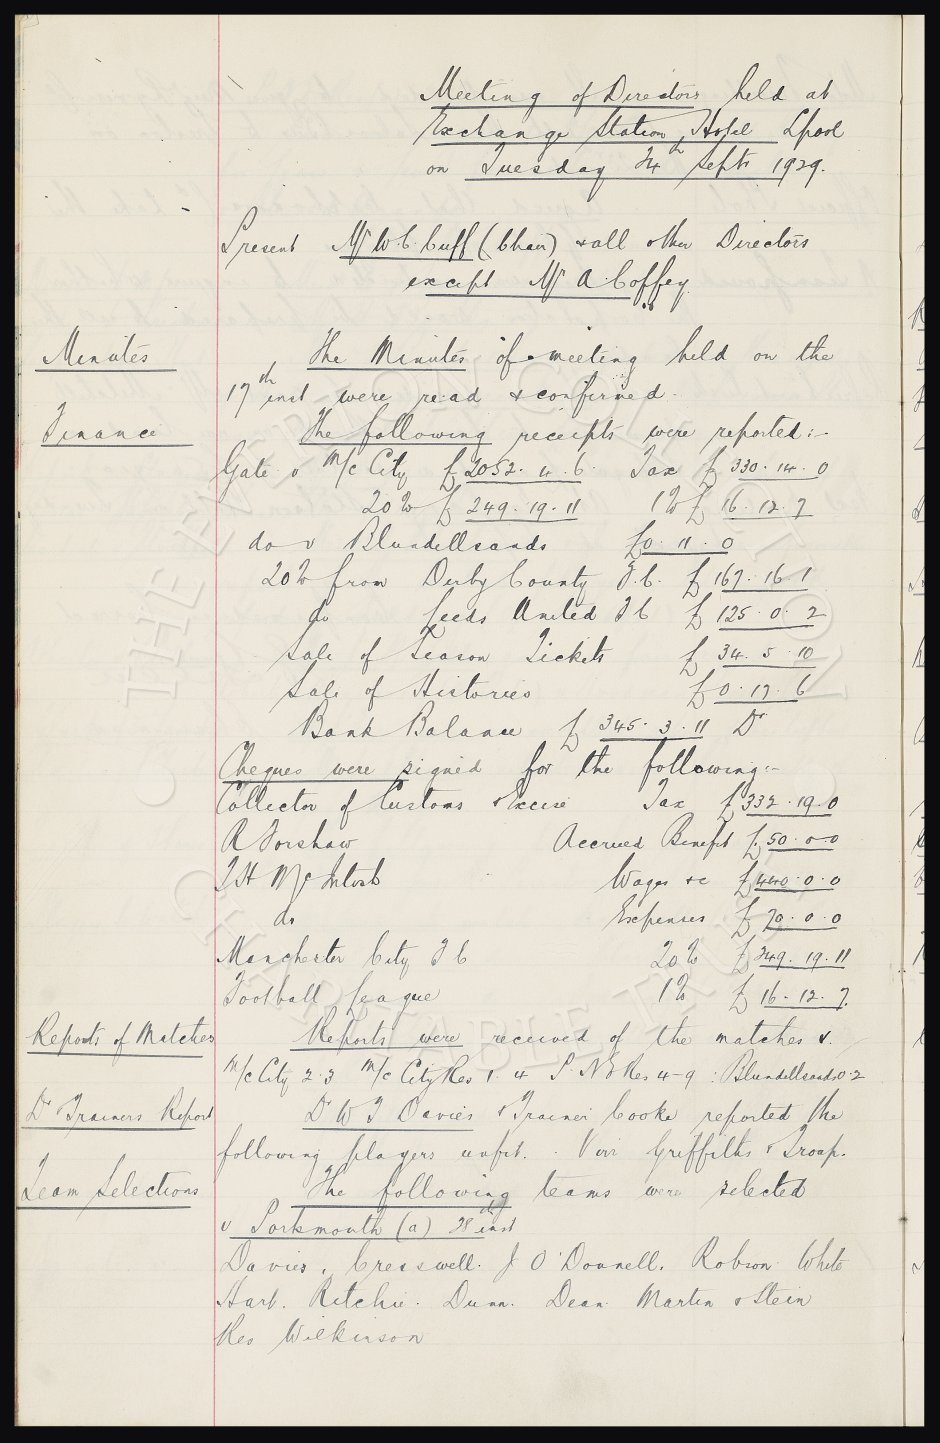 Meeting of Directors held at
Exchange Station Hotel Lpool
on Tuesday 24th Septr 1929.
Present Mr W.C. Cuff (Chair) & all other Directors
except Mr A Coffey.
Minutes The Minutes of meeting held on the
17th inst were read & confirmed.
Finance The following receipts were reported:-
Gate v M/c City £2052. 4. 6. Tax £330. 14. 0
20% £249. 19. 11 1% £16. 12. 7
do v Blundellsands £0. 11. 0
20% from Derby County F.C. £167. 16. 1
do Leeds United F C £125. 0. 2
Sale of Season Tickets £34. 5. 10
Sale of Histories £0. 17. 6
Bank Balance £345. 3. 11 Dr
Cheques were signed for the following:-
Collector of Customs & Excise Tax £332. 19. 0
R Forshaw Accrued Benefit £50. 0. 0
T H McIntosh Wages &c £440. 0. 0
do Expenses £70. 0. 0
Manchester City F C 20% £249. 19. 11
Football League 1% £16. 12. 7.
Reports of Matches Reports were received of the matches v.
M/c City 2-3 M/c City Res 1. 4 Res 4-9 : Blundellsands 0-2
Dr & Trainers Report Dr W F Davies & Trainer Cooke reported the
following players unfit. Virr Griffiths & Troup.
Team Selections The following teams were selected
v Portsmouth (a) 28th inst
Davies, Cresswell. J O'Donnell. Robson White
Hart. Ritchie. Dunn. Dean Martin & Stein
Res Wilkinson
THE EVERTON